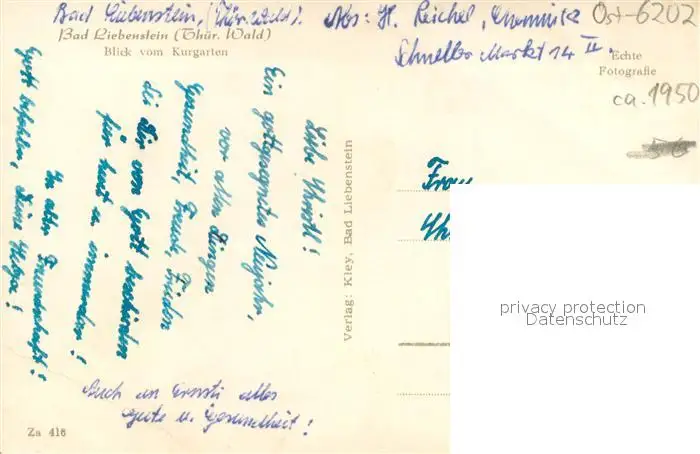 Bad Liebenstein, (Thür. Wald). Abs: H. Reichel, Chemnitz
Schneller Markt 14 II.
Ost-6202
Bad Liebenstein (Thür. Wald)
Blick vom Kurgarten
Echte
Fotografie
ca. 1950
Liebe Christl!
Ein gottgesegnetes Neujahr,
vor allen Dingen
Gesundheit, Freude, Frieden
die Dir von Gott beschieden
für heut u. immerdar!
In alter Freundschaft!
Gott befohlen, Deine Helga!
Auch an Ernsti alles
Gute u. Gesundheit!
Verlag: Kley, Bad Liebenstein
Frau
Ch
privacy protection
Datenschutz
Za 416